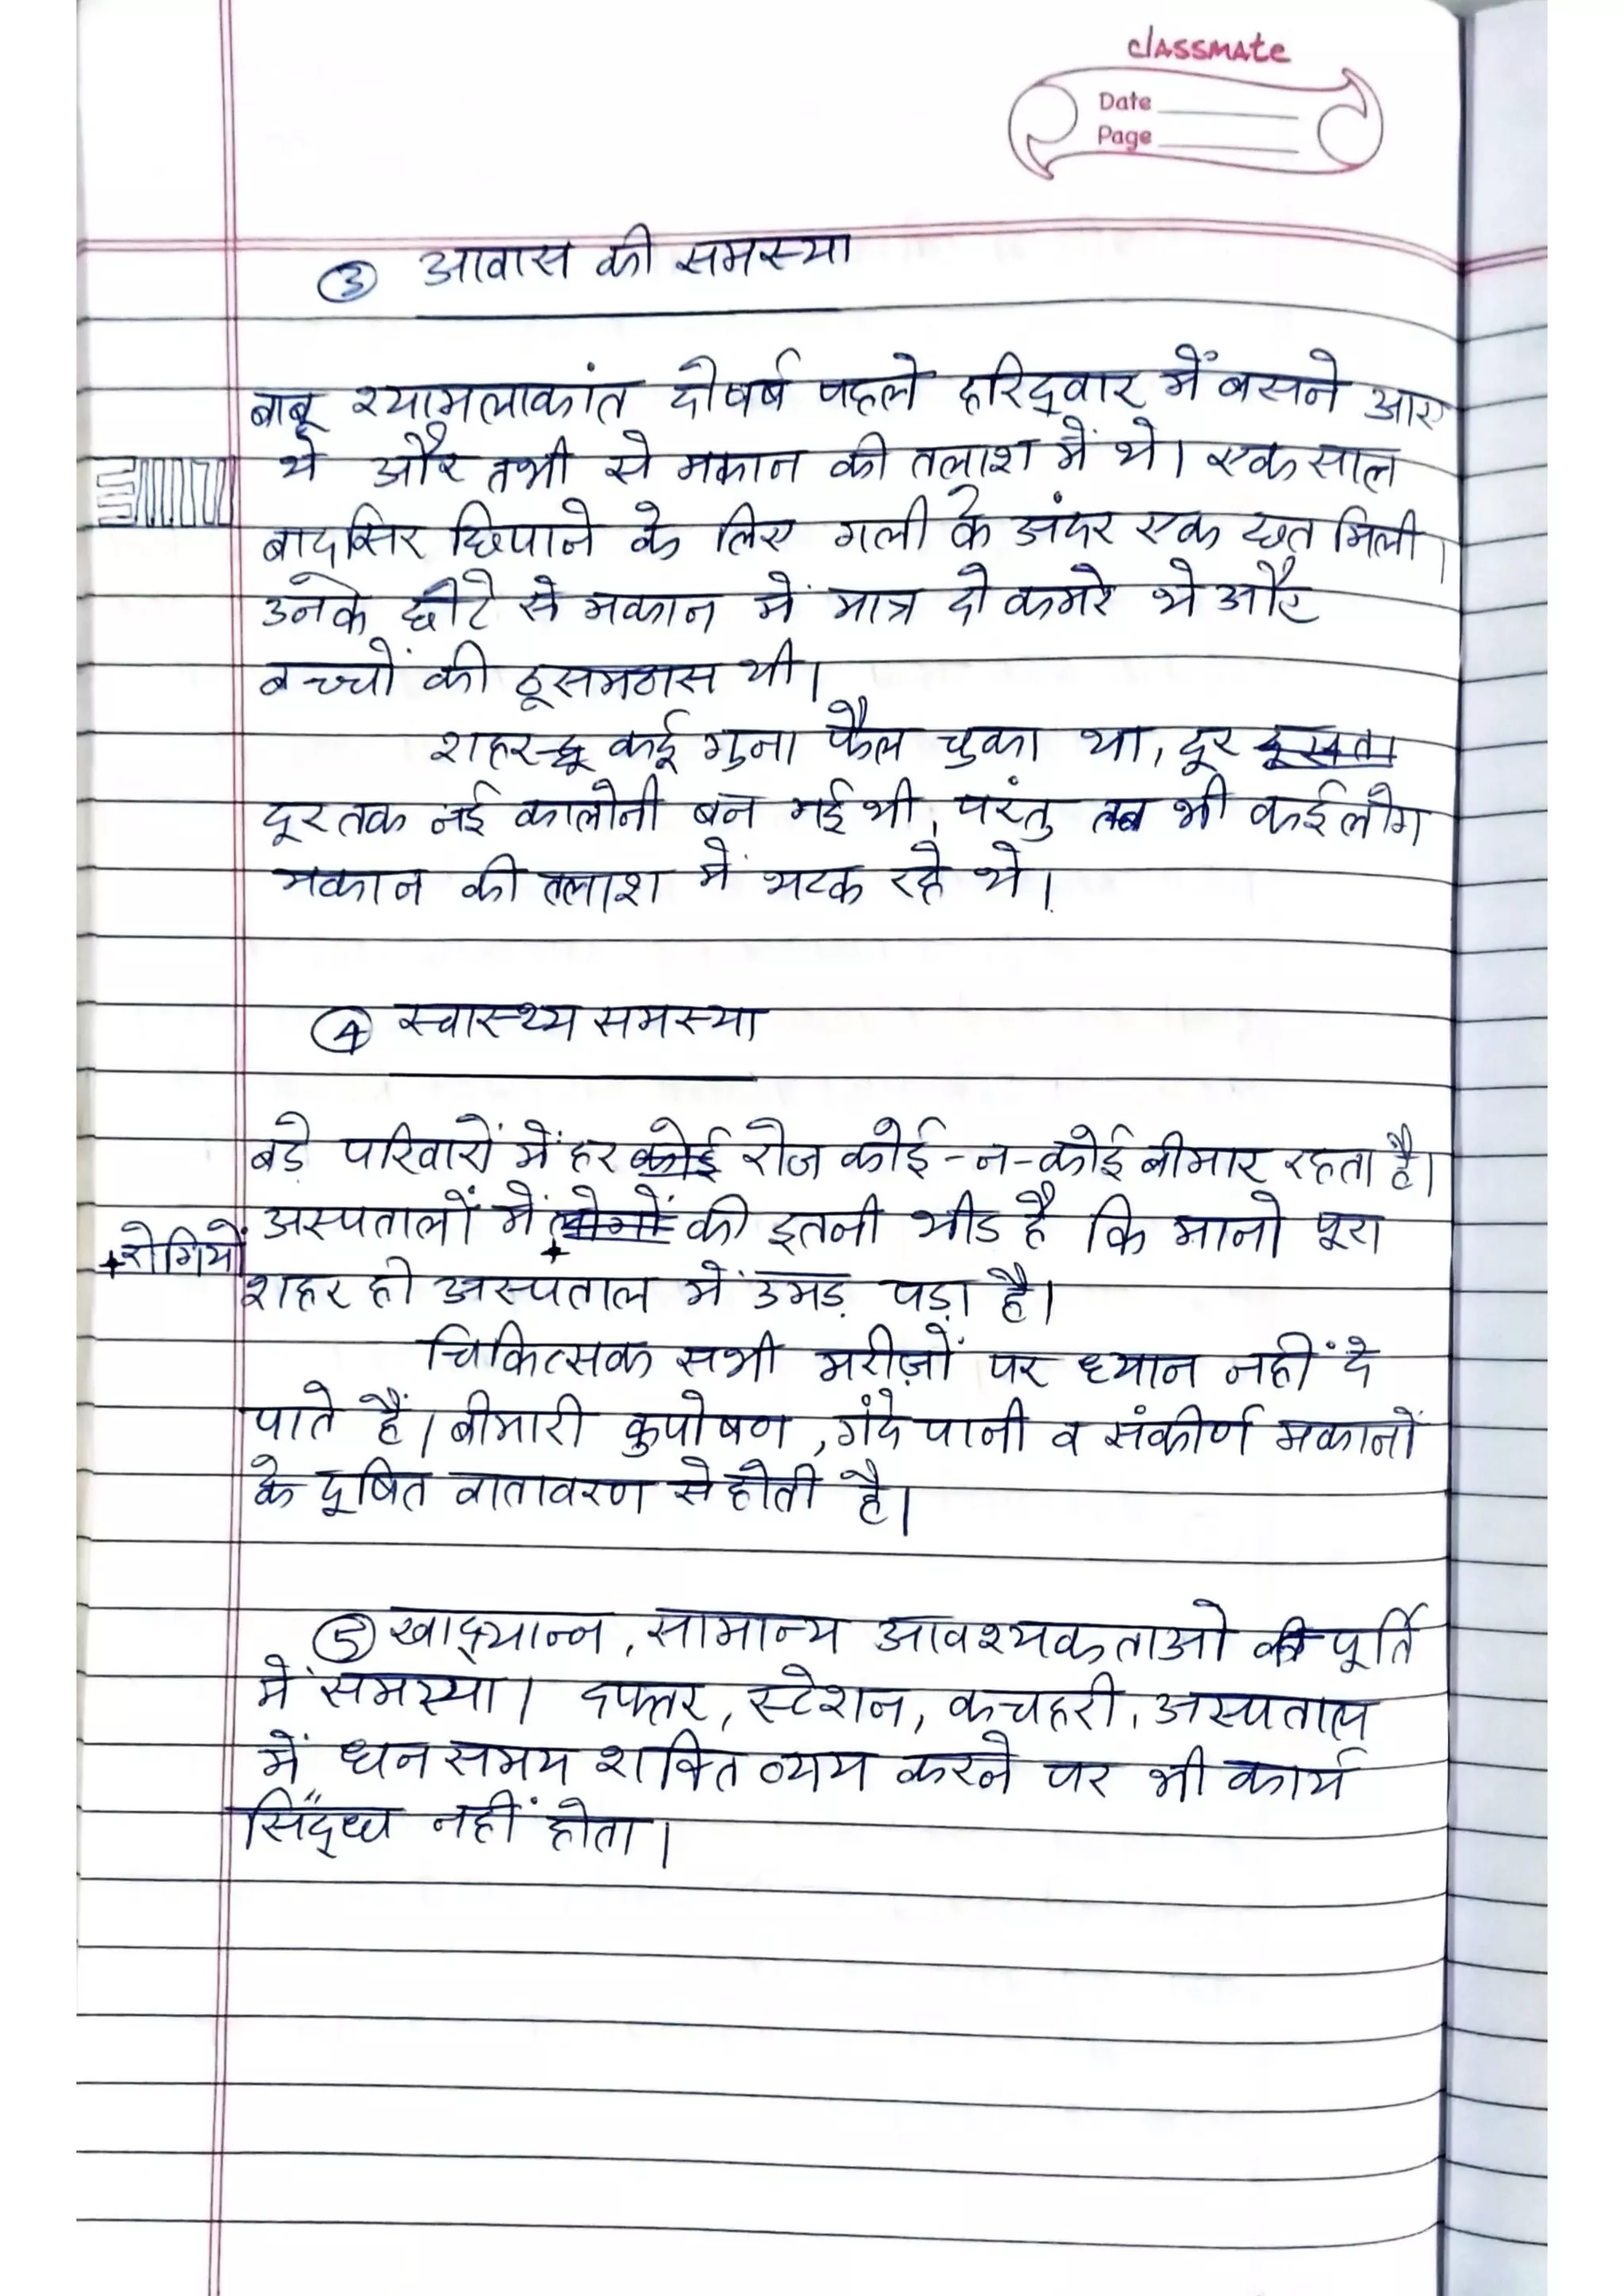 classmate
Date
Page
③ आवास की समस्या
बाबू श्यामलाकांत दो वर्ष पहले हरिद्वार में बसने आए
थे और तभी से मकान की तलाश में थे। एक साल
बाद सिर छिपाने के लिए गली के अंदर एक छत मिली।
उनके छोटे से मकान में मात्र दो कमरे थे और
बच्चों की ठूसमठास थी।
शहर कई गुना फैल चुका था, दूर
दूर तक नई कालोनी बन गई थी, परंतु तब भी कई लोग
मकान की तलाश में भटक रहे थे।
④ स्वास्थ्य समस्या
बड़े परिवारों में हर कोई रोज कोई-न-कोई बीमार रहता है।
अस्पतालों में लोगों की इतनी भीड है कि मानो पूरा
+रोगियों
शहर ही अस्पताल में उमड़ पड़ा है।
चिकित्सक सभी मरीज़ों पर ध्यान नहीं दे
पाते हैं। बीमारी कुपोषण, गंदे पानी व संकीर्ण मकानों
के दूषित वातावरण से होती है।
⑤ खाद्यान्न, सामान्य आवश्यकताओ की पूर्ति
में समस्या। दफ्तर, स्टेशन, कचहरी, अस्पताल
में धन समय शक्ति व्यय करने पर भी कार्य
सिद्ध नहीं होता।